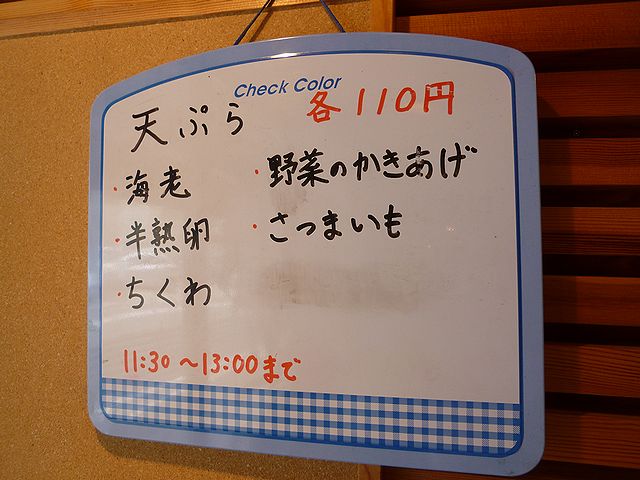 Check Color
天ぷら 各110円
・海老 ・野菜のかきあげ
・半熟卵 ・さつまいも
・ちくわ
11:30～13:00まで